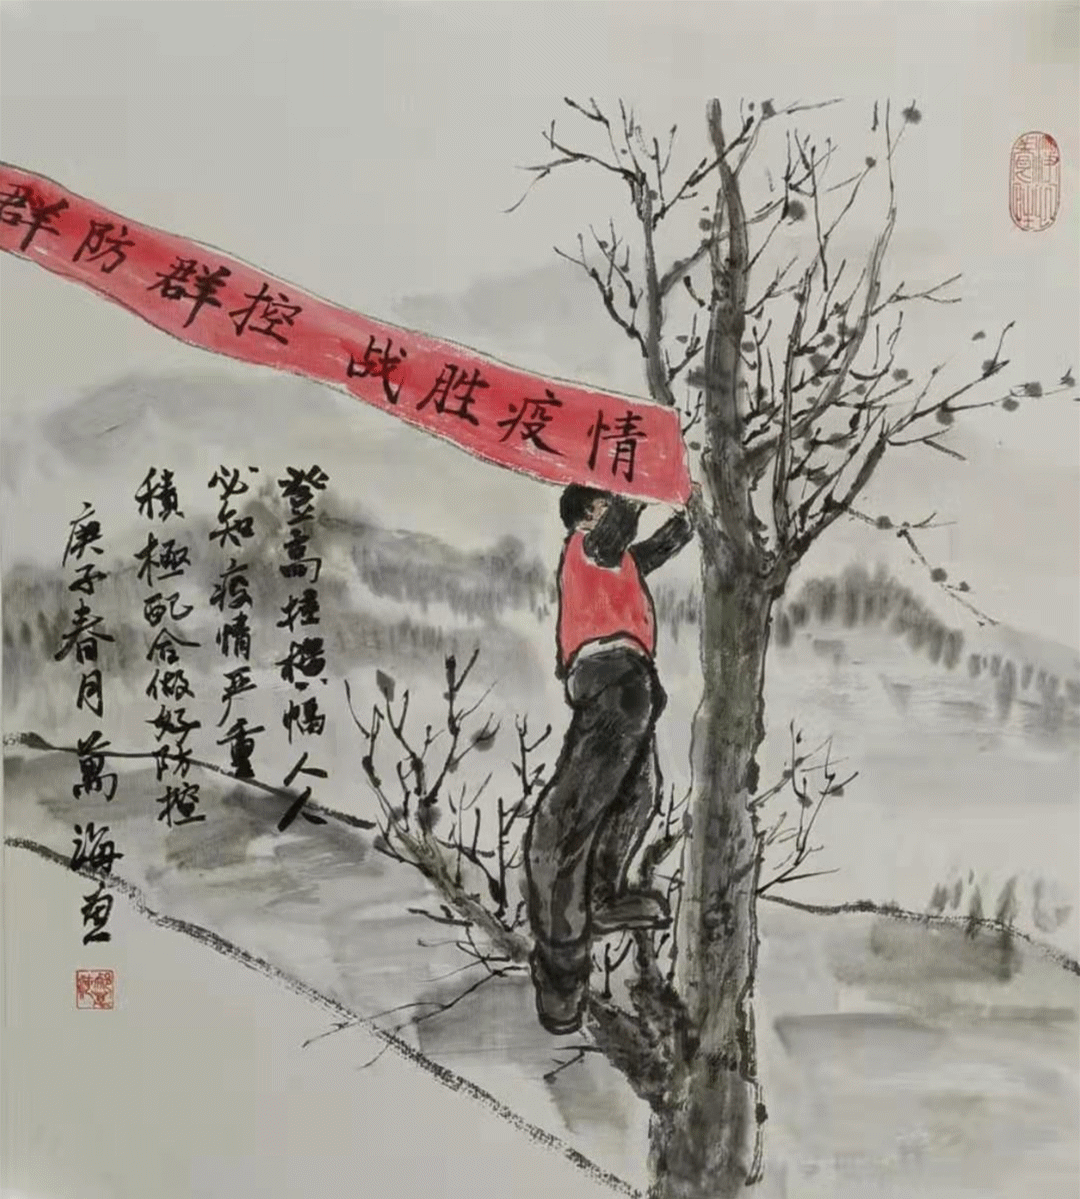 群防群控 战胜疫情
登高挂横幅人人
必知疫情严重
積極配合做好防控
庚子春月萬海画